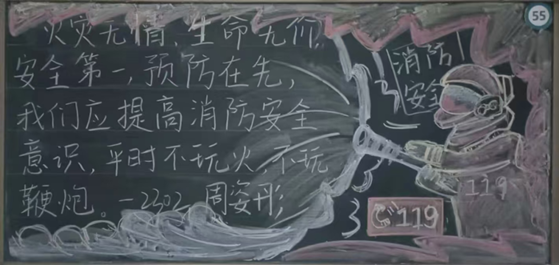 火灾无情、生命无价,
安全第一,预防在先,
我们应提高消防安全
意识,平时不玩火,不玩
鞭炮。—2302 周姿彤
消防
安全
119
119
55